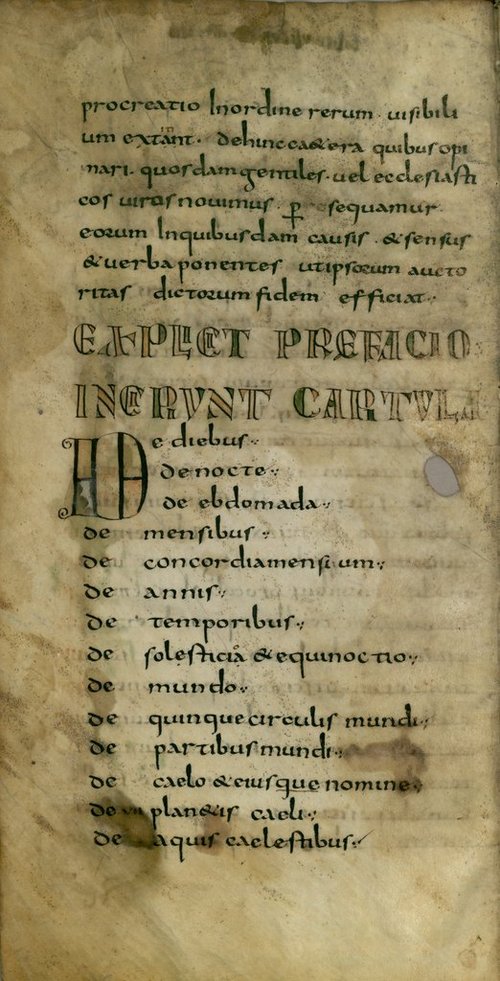 procreatio Inordine rerum · uisibili
um extant · dehinc ca&era quibus opi
nari · quos dam gentiles · uel ecclesiasti
cos uiros nouimus · ꝑ sequamur
eorum Inquibusdam causis · & sensus
& uerba ponentes utipsorum aucto
ritas dictorum fidem efficiat ·,
EXPLICT PREFACIO
INCIPIUNT CARTULA
De diebus ·,
de nocte ·,
de ebdomada ·,
de mensibus ·,
de concordiamensium ·,
de annis ·,
de temporibus ·,
de solesticia & equinoctio ·,
de mundo ·,
de quinque circulis mundi ·,
de partibus mundi ·,
de caelo & eiusque nomine ·,
de plan&is caeli ·,
de aquis caelestibus ·,